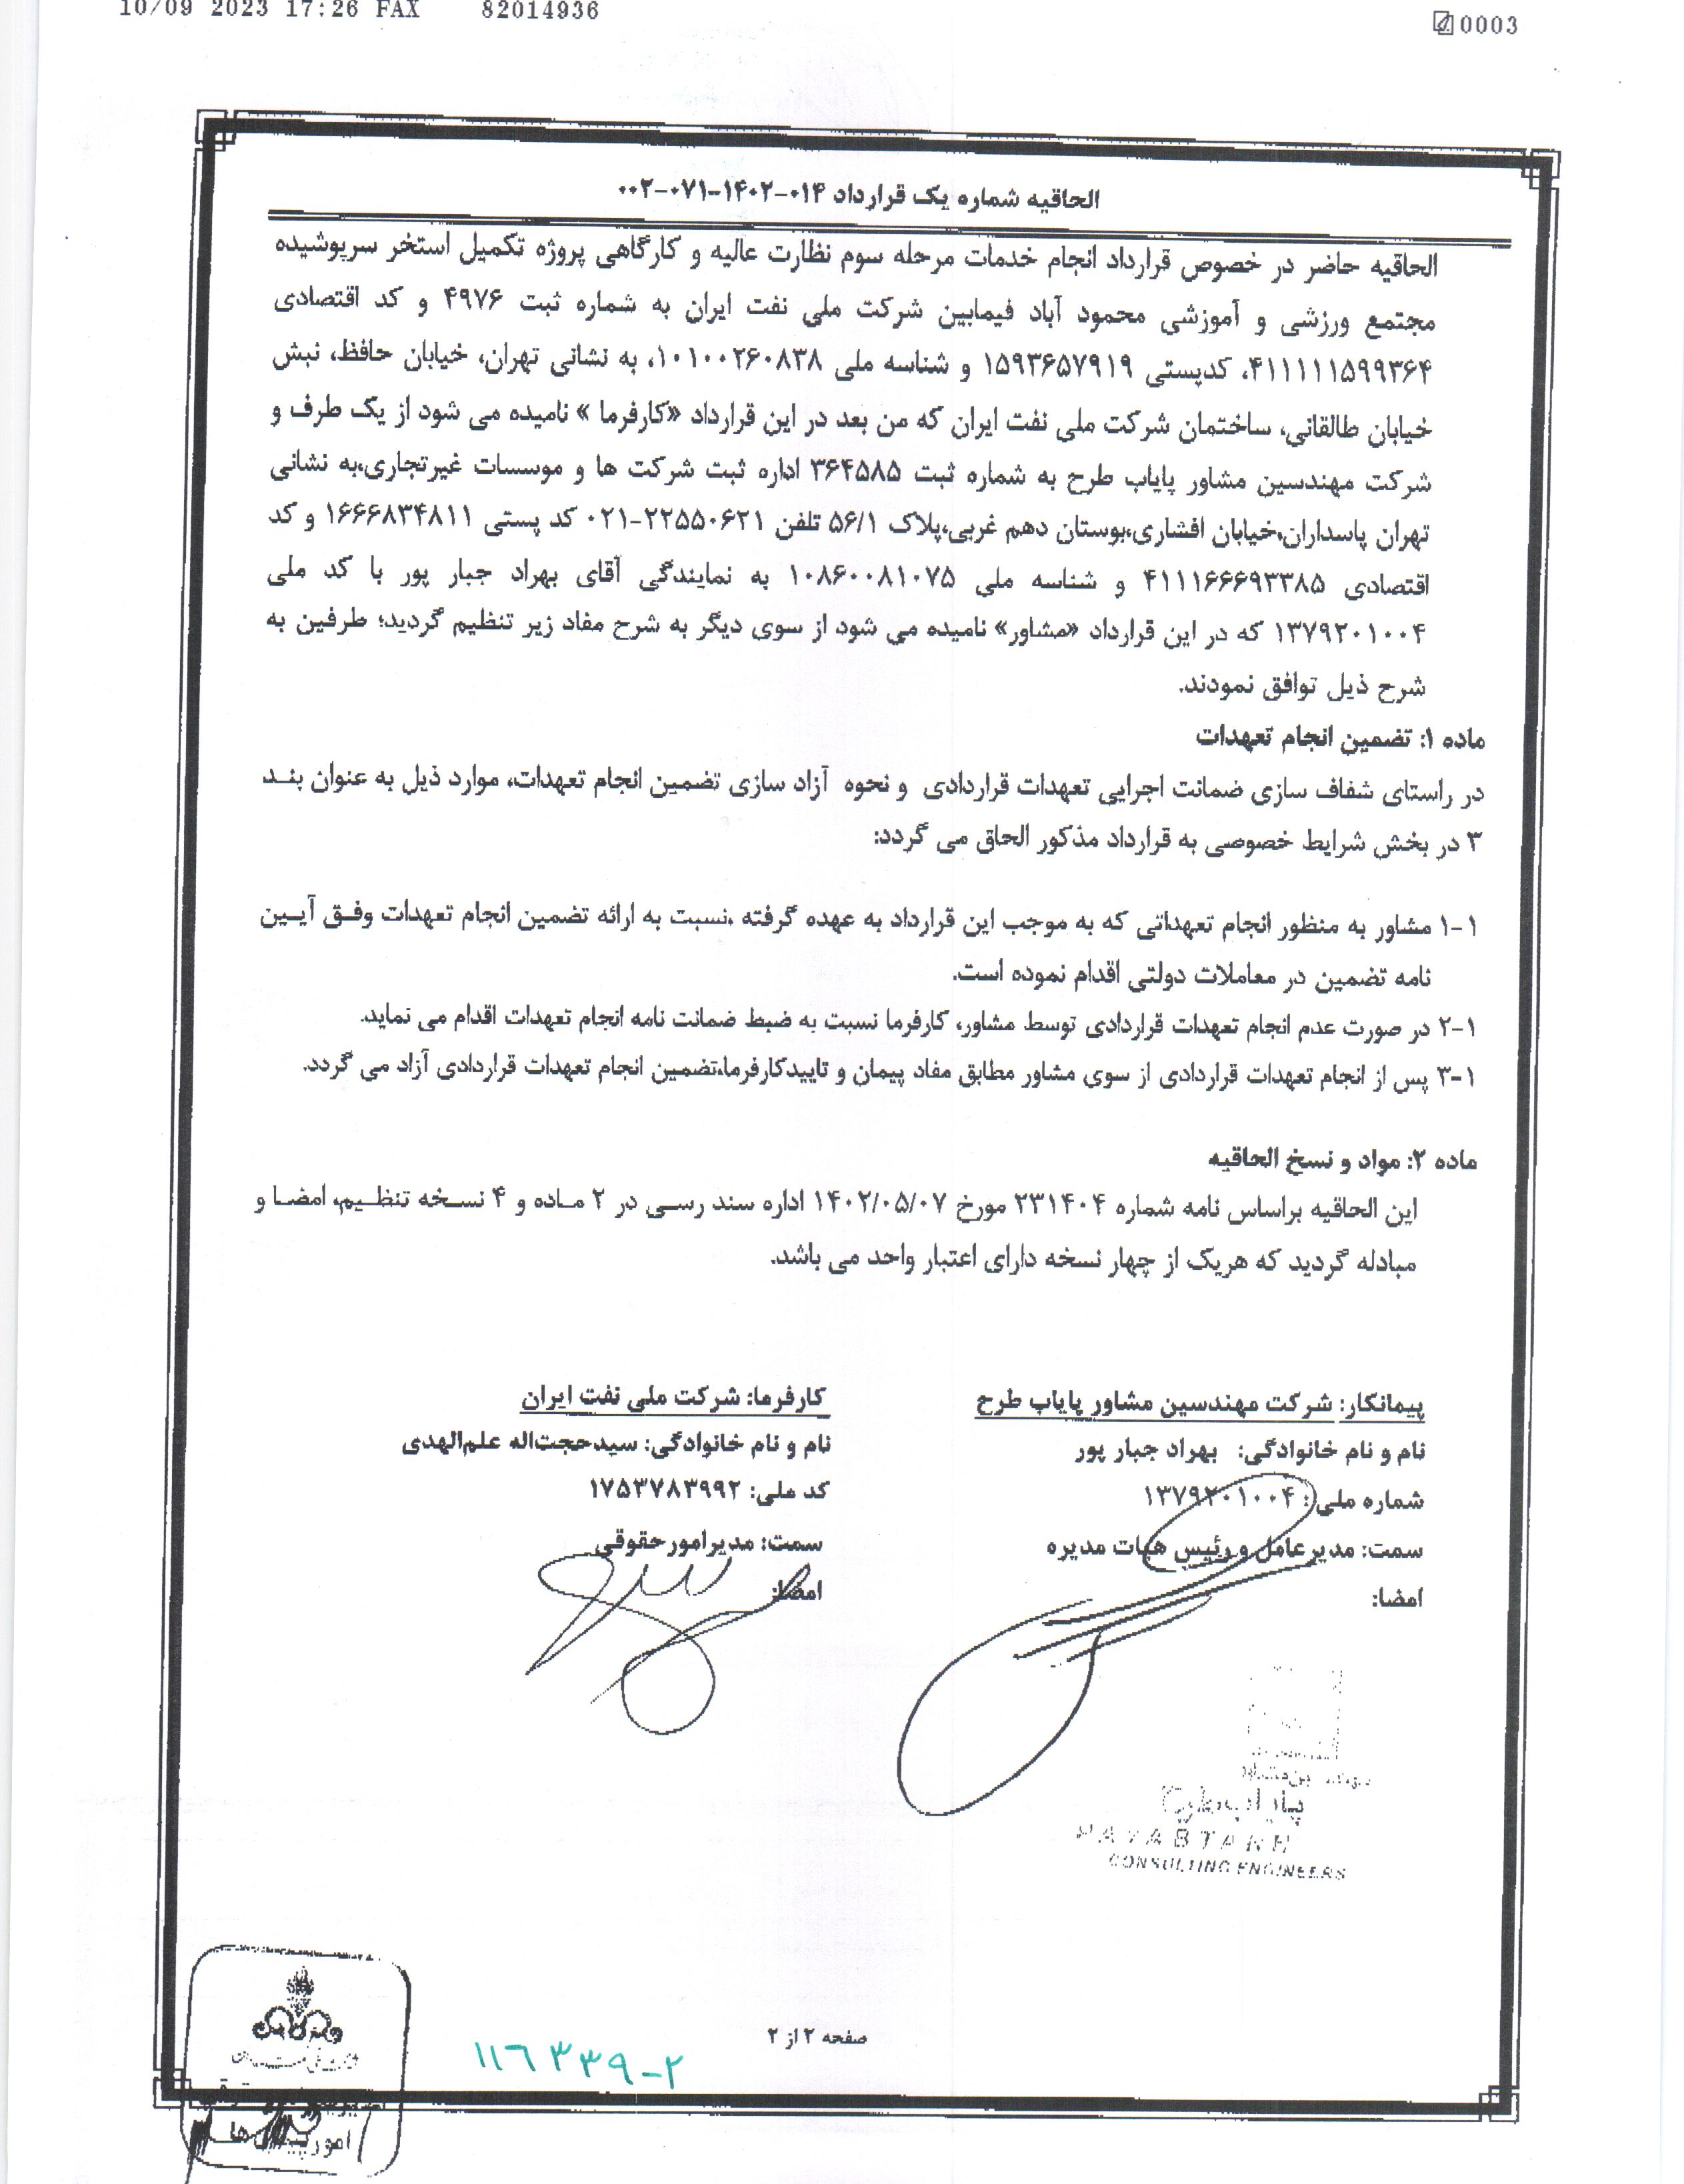 10/09 2023 17:26 FAX 82014936 0003
الحاقیه شماره یک قرارداد ۰۱۴-۱۴۰۲-۰۷۱-۰۰۲
الحاقیه حاضر در خصوص قرارداد انجام خدمات مرحله سوم نظارت عالیه و کارگاهی پروژه تکمیل استخر سرپوشیده
مجتمع ورزشی و آموزشی محمود آباد فیمابین شرکت ملی نفت ایران به شماره ثبت ۴۹۷۶ و کد اقتصادی
۴۱۱۱۱۱۵۹۹۳۶۴، کدپستی ۱۵۹۳۶۵۷۹۱۹ و شناسه ملی ۱۰۱۰۰۲۶۰۸۳۸، به نشانی تهران، خیابان حافظ، نبش
خیابان طالقانی، ساختمان شرکت ملی نفت ایران که من بعد در این قرارداد «کارفرما » نامیده می شود از یک طرف و
شرکت مهندسین مشاور پایاب طرح به شماره ثبت ۳۶۴۵۸۵ اداره ثبت شرکت ها و موسسات غیرتجاری،به نشانی
تهران پاسداران،خیابان افشاری،بوستان دهم غربی،پلاک ۵۶/۱ تلفن ۲۲۵۵۰۶۲۱-۰۲۱ کد پستی ۱۶۶۶۸۳۴۸۱۱ و کد
اقتصادی ۴۱۱۱۶۶۶۹۳۳۸۵ و شناسه ملی ۱۰۸۶۰۰۸۱۰۷۵ به نمایندگی آقای بهراد جبار پور با کد ملی
۱۳۷۹۲۰۱۰۰۴ که در این قرارداد «مشاور» نامیده می شود از سوی دیگر به شرح مفاد زیر تنظیم گردید؛ طرفین به
شرح ذیل توافق نمودند.
ماده ۱: تضمین انجام تعهدات
در راستای شفاف سازی ضمانت اجرایی تعهدات قراردادی و نحوه آزاد سازی تضمین انجام تعهدات، موارد ذیل به عنوان بند
۳ در بخش شرایط خصوصی به قرارداد مذکور الحاق می گردد:
۱-۱ مشاور به منظور انجام تعهداتی که به موجب این قرارداد به عهده گرفته ،نسبت به ارائه تضمین انجام تعهدات وفق آیین
نامه تضمین در معاملات دولتی اقدام نموده است.
۲-۱ در صورت عدم انجام تعهدات قراردادی توسط مشاور، کارفرما نسبت به ضبط ضمانت نامه انجام تعهدات اقدام می نماید.
۳-۱ پس از انجام تعهدات قراردادی از سوی مشاور مطابق مفاد پیمان و تاییدکارفرما،تضمین انجام تعهدات قراردادی آزاد می گردد.
ماده ۲: مواد و نسخ الحاقیه
این الحاقیه براساس نامه شماره ۲۳۱۴۰۴ مورخ ۱۴۰۲/۰۵/۰۷ اداره سند رسی در ۲ ماده و ۴ نسخه تنظیم، امضا و
مبادله گردید که هریک از چهار نسخه دارای اعتبار واحد می باشد.
پیمانکار: شرکت مهندسین مشاور پایاب طرح
نام و نام خانوادگی: بهراد جبار پور
شماره ملی: ۱۳۷۹۲۰۱۰۰۴
سمت: مدیرعامل و رئیس هیات مدیره
امضا:
کارفرما: شرکت ملی نفت ایران
نام و نام خانوادگی: سیدحجت‌اله علم‌الهدی
کد ملی: ۱۷۵۳۷۸۳۹۹۲
سمت: مدیرامورحقوقی
امضا:
پایاب طرح
PAYABTARH
CONSULTING ENGINEERS
صفحه ۲ از ۲
۱۱۶۳۳۹-۲
امور پیمان ها